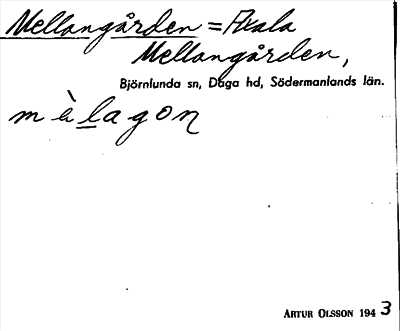 Mellangården = Axala
Mellangården,
Björnlunda sn, Daga hd, Södermanlands län.
mèlagon
ARTUR OLSSON 1943